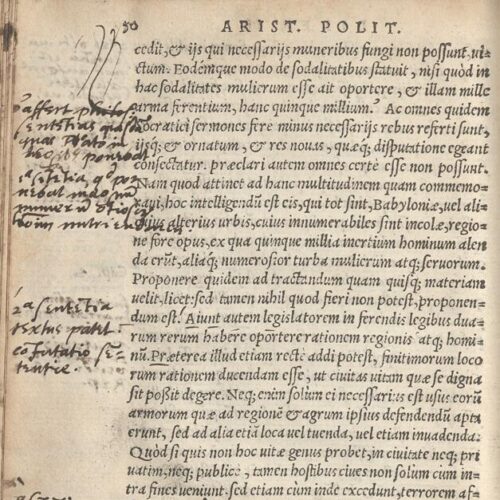 50
ARIST. POLIT.
cedit, & ijs qui necessarijs muneribus fungi non possunt. ui=
ctum. Eodemque modo de sodalitatibus statuit, nisi quòd in
hac sodalitates mulierum esse ait oportere, & illam mille
arma ferentium, hanc quinque millium. Ac omnes quidem
Socratici sermones fere minus necessarijs rebus referti sunt,
ijsq; & ornatum, & res nouas, quæq; disputatione egeant
consectatur. præclari autem omnes certe esse non possunt.
Nam quod attinet ad hanc multitudinem quam commemo=
raui, hoc intelligendũ est eis, qui tot sint, Babyloniæ, uel ali=
cuius alterius urbis, cuius innumerabiles sint incolæ, regio=
ne fore opus, ex qua quinque millia inertium hominum alen
da erũt, aliaq; numerosior turba mulierum atq; seruorum.
Proponere quidem ad tractandum quam quisq; materiam
uelit, licet: sed tamen nihil quod fieri non potest, proponen=
dum est. Aiunt autem legislatorem in ferendis legibus dua=
rum rerum habere oportere rationem regionis atq; homi=
nũ. Præterea illud etiam recte addi potest, finitimorum loco
rum rationem ducendam esse, ut ciuitas uitam quæ se digna
sit possit degere. Neq; enim solum ei necessarius est usus eorũ
armorum quæ ad regionẽ & agrum ipsius defendendũ apta
erunt, sed ad alia etiã loca uel tuenda, uel etiam inuadenda.
Quòd si quis non hoc uitæ genus probet, in ciuitate neq; pri
uatim, neq; publice, tamen hostibus ciues non solum cum in=
tra fines ueniunt sed etiam cum inde excedunt, terrorem af=
affert
sententias
2a sententia
textus patet